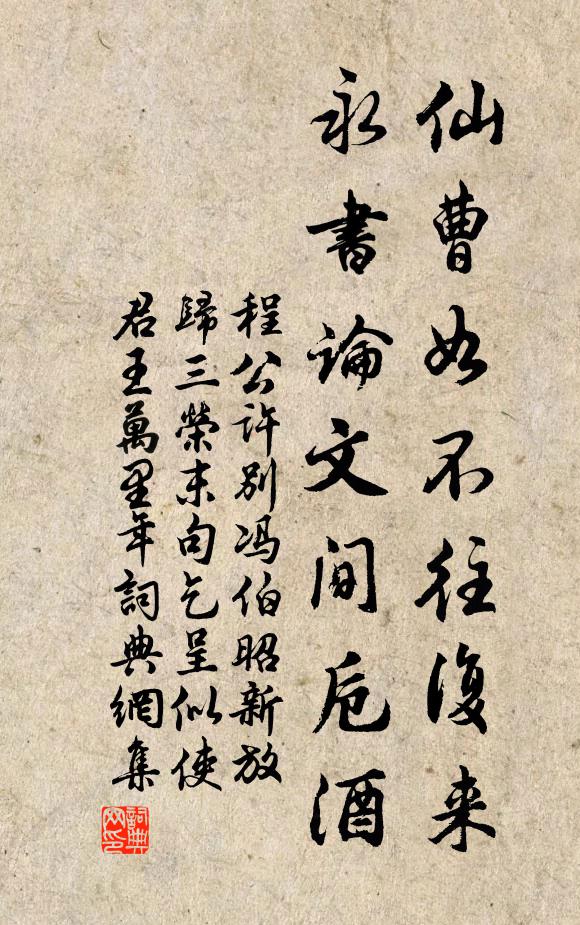 仙曹如不往復来
永书論文间卮酒
程公许别冯伯昭新放
歸三榮末句乞呈似使
君王萬里年詞典網集
詞典
网印